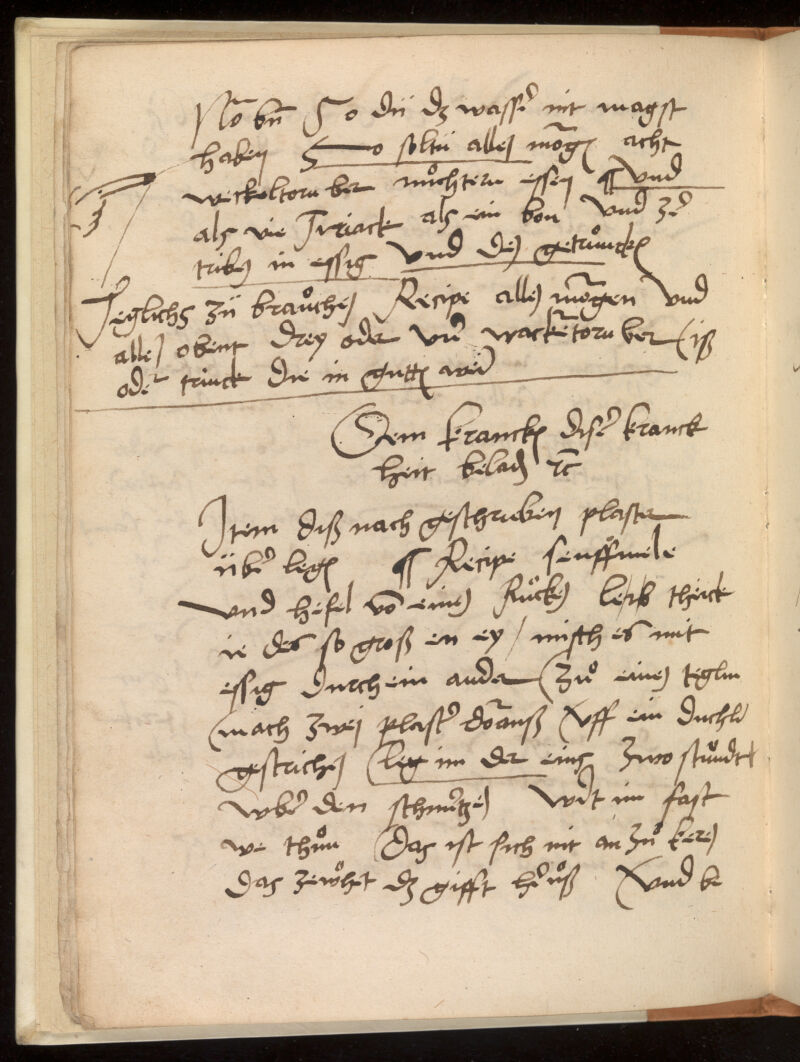 So dü dz wasser nit magst
haben So soltu alleñ mőrgen acht
weckoltoruber nůchtern essen ¶ Vnd
als vie Tiriack als ein bon Vnd zer
triben in essig Vnd den getrůncken
Teglichs zü brauchen Recipe alle morgen Vnd
allen obent drey oder vier wackeltoruber (iß
oder trinck die in gutten wein
Dem krancken diser kranck
heit beladen ꝛc
Item diß nach geschrieben plaster
über legen ¶ Recipe senffmele
vnd hefel von einen Rucken leib theick
ie des so groß en ey / misch es mit
essig durch ein ander (zuo einen teglin
(mach zwei plaster doranß (vff ein duchli
gestrichen (leg im der eins zwo stundt
wber den schmertzen wirt im fast
we thůn (das ist sich nit an zuo keren
das zewhet dz gifft herůß (Vnd be